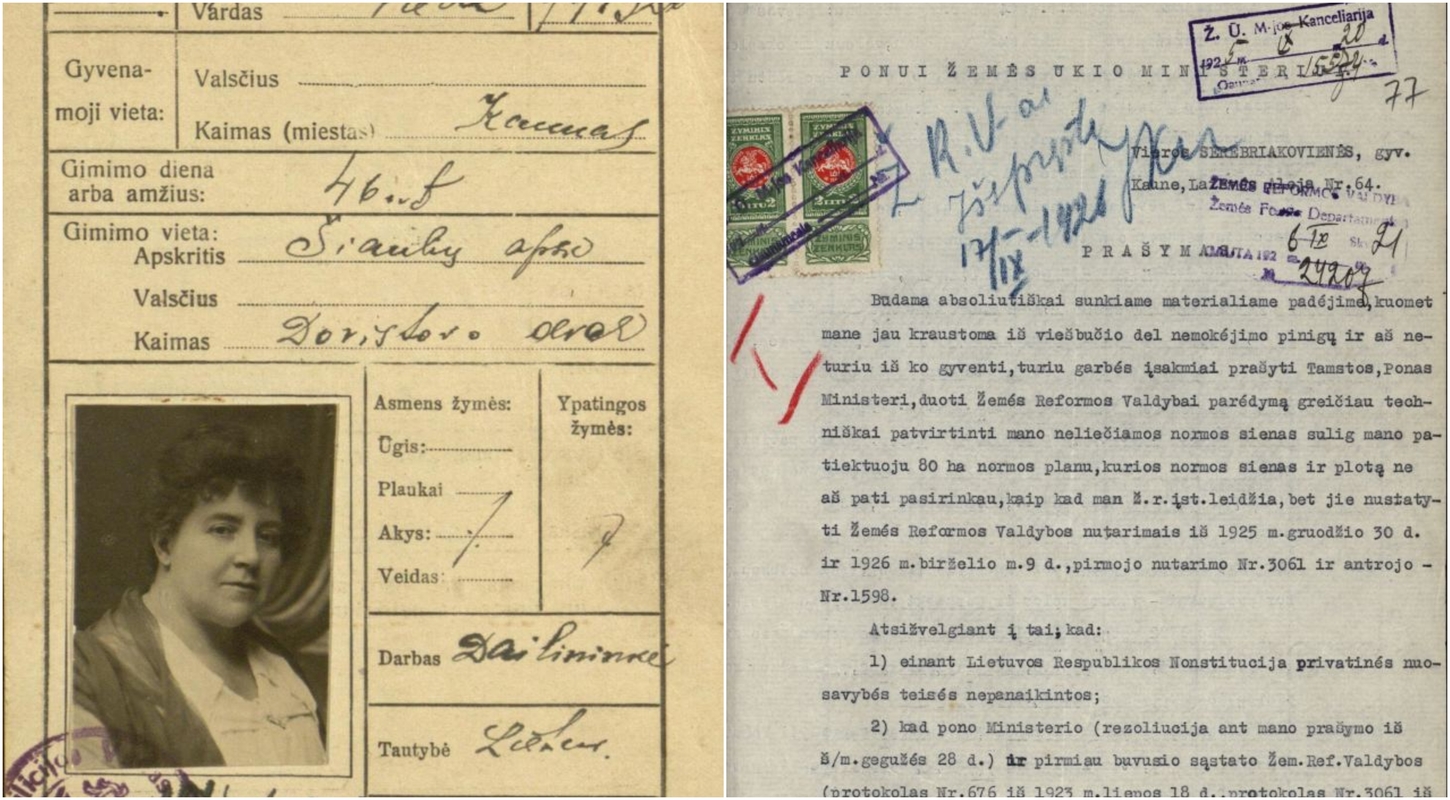 Vardas
Gyvena-
moji vieta:
Valsčius
Kaimas (miestas) Kaunas
Gimimo diena
arba amžius:
46
Gimimo vieta:
Apskritis Šiaulių
Valsčius
Kaimas dvar
Asmens žymės:
Ūgis:
Plaukai
Akys:
Veidas:
Ypatingos
žymės:
Darbas Dailininkė
Tautybė
Ž. Ū. M-jos Kanceliarija
PONUI ŽEMĖS UKIO MINISTERIUI
77
Vieros SEREBRIAKOVIENĖS, gyv.
Kaune, Nr.64.
ŽEMĖS REFORMOS VALDYBA
Žemės Fondo Departamentas
6 IX
24207
PRAŠYMAS
17/IX 1926
Budama absoliutiškai sunkiame materialiame padėjime,kuomet
mane jau kraustoma iš viešbučio del nemokėjimo pinigų ir aš ne-
turiu iš ko gyventi,turiu garbės įsakmiai prašyti Tamstos,Ponas
Ministeri,duoti Žemės Reformos Valdybai parėdymą greičiau tech-
niškai patvirtinti mano neliečiamos normos sienas sulig mano pa-
tiektuoju 80 ha normos planu,kurios normos sienas ir plotą ne
aš pati pasirinkau,kaip kad man ž.r.įst.leidžia,bet jie nustaty-
ti Žemės Reformos Valdybos nutarimais iš 1925 m.gruodžio 30 d.
ir 1926 m.birželio m.9 d.,pirmojo nutarimo Nr.3061 ir antrojo -
Nr.1598.
Atsižvelgiant į tai,kad:
1) einant Lietuvos Respublikos Nonstitucija privatinės nuo-
savybės teisės nepanaikintos;
2) kad pono Ministerio (rezoliucija ant mano prašymo iš
š/m.gegužės 28 d.) ir pirmiau buvusio sąstato Žem.Ref.Valdybos
(protokolas Nr.676 iš 1923 m.liepos 18 d.,protokolas Nr.3061 iš